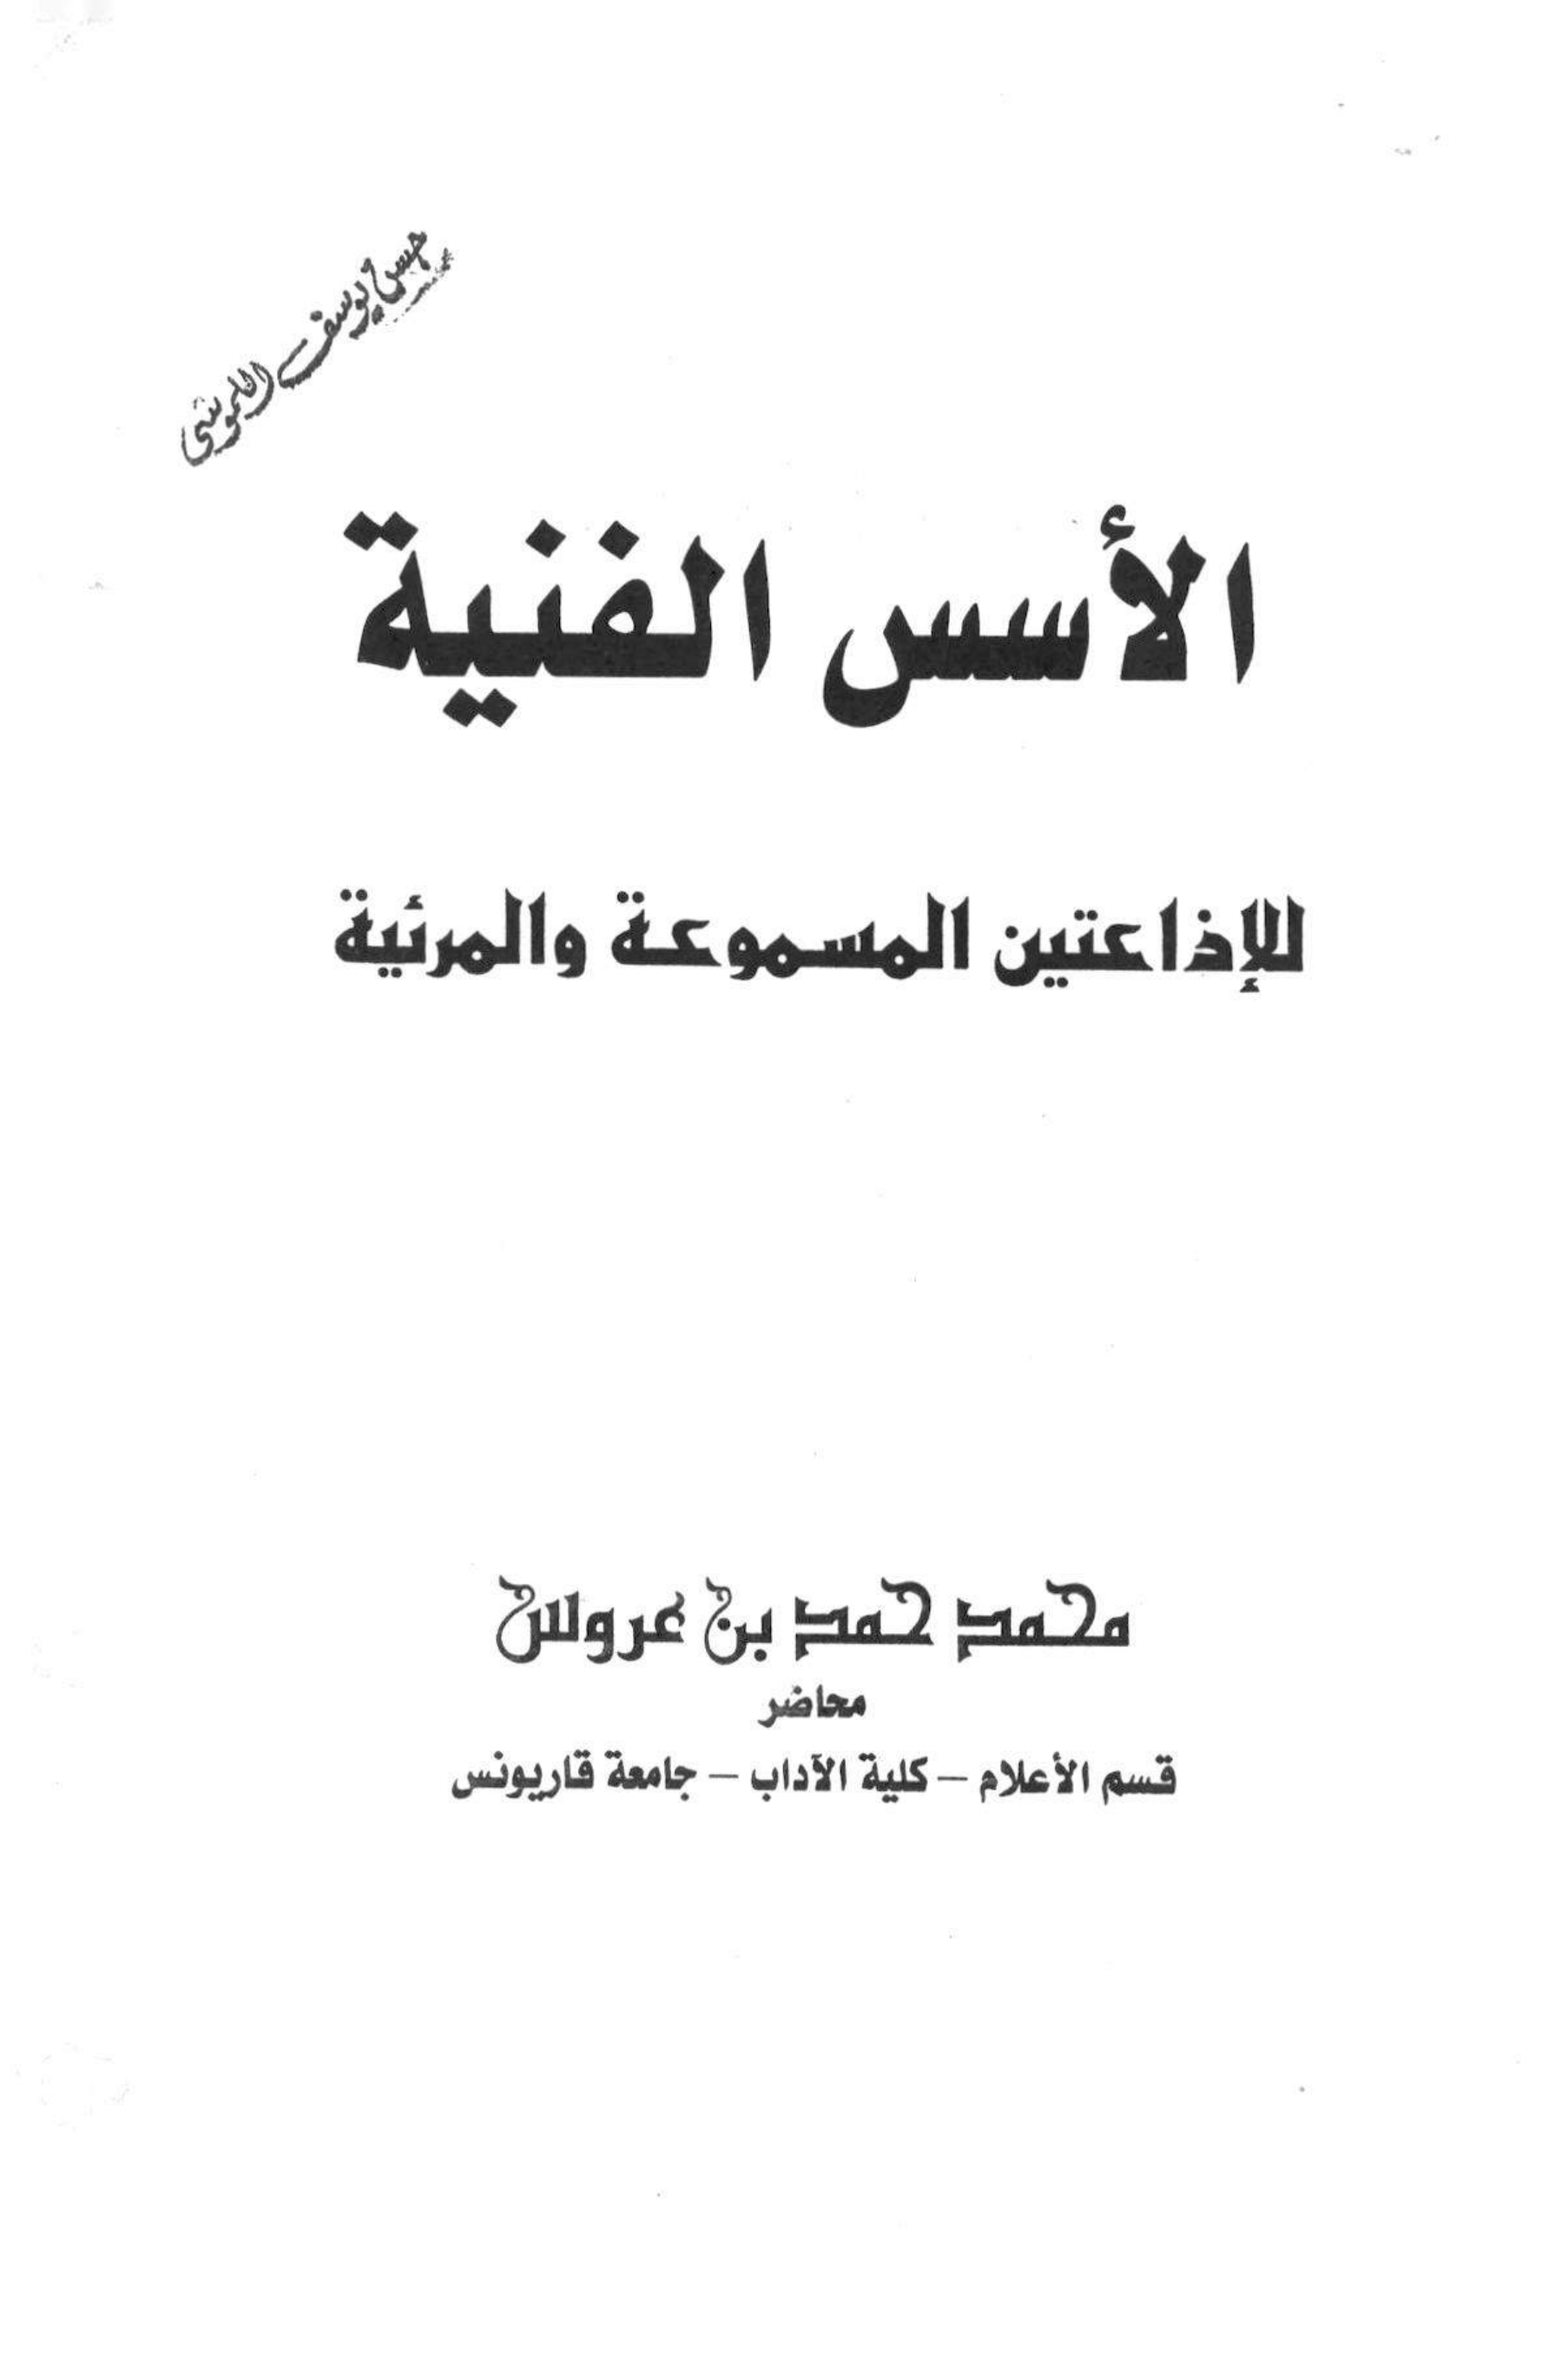 حسن يوسف
الأسس الفنية
للإذاعتين المسموعة والمرئية
محمد حمد بن عروس
محاضر
قسم الأعلام – كلية الآداب – جامعة قاريونس